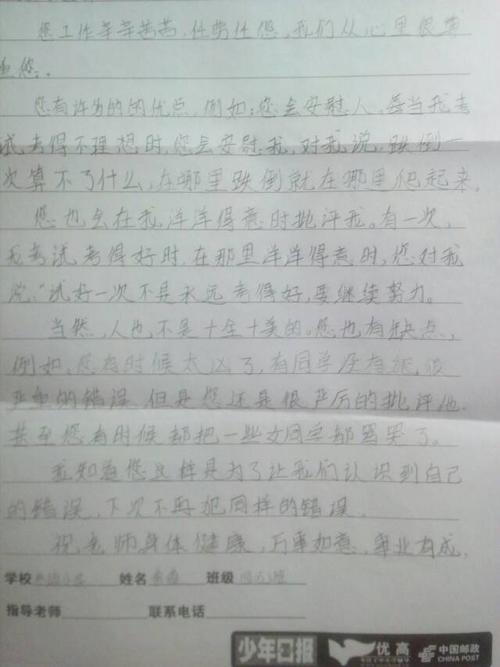 您工作辛辛苦苦，任劳任怨，我们从心里很尊
重您。
您有许多的的优点，例如：您会安慰人，每当我考
试考得不理想时，您会安慰我，对我说，跌倒一
次算不了什么，在哪里跌倒就在哪里爬起来。
您也会在我洋洋得意时批评我。有一次，
我考试考得好时，在那里洋洋得意时，您对我
说，“试好一次不是永远考得好，要继续努力。
当然，人也不是十全十美的。您也有缺点，
例如，您有时候太凶了，有同学没有
严重的错误，但是您还是很严厉的批评他
甚至您有时候都把一些女同学都骂哭了。
我知道您这样是为了让我们认识到自己
的错误，下次不再犯同样的错误。
祝老师身体健康，万事如意，事业有成。
学校 姓名 班级
指导老师 联系电话
少年日报 优高 中国邮政
CHINA POST